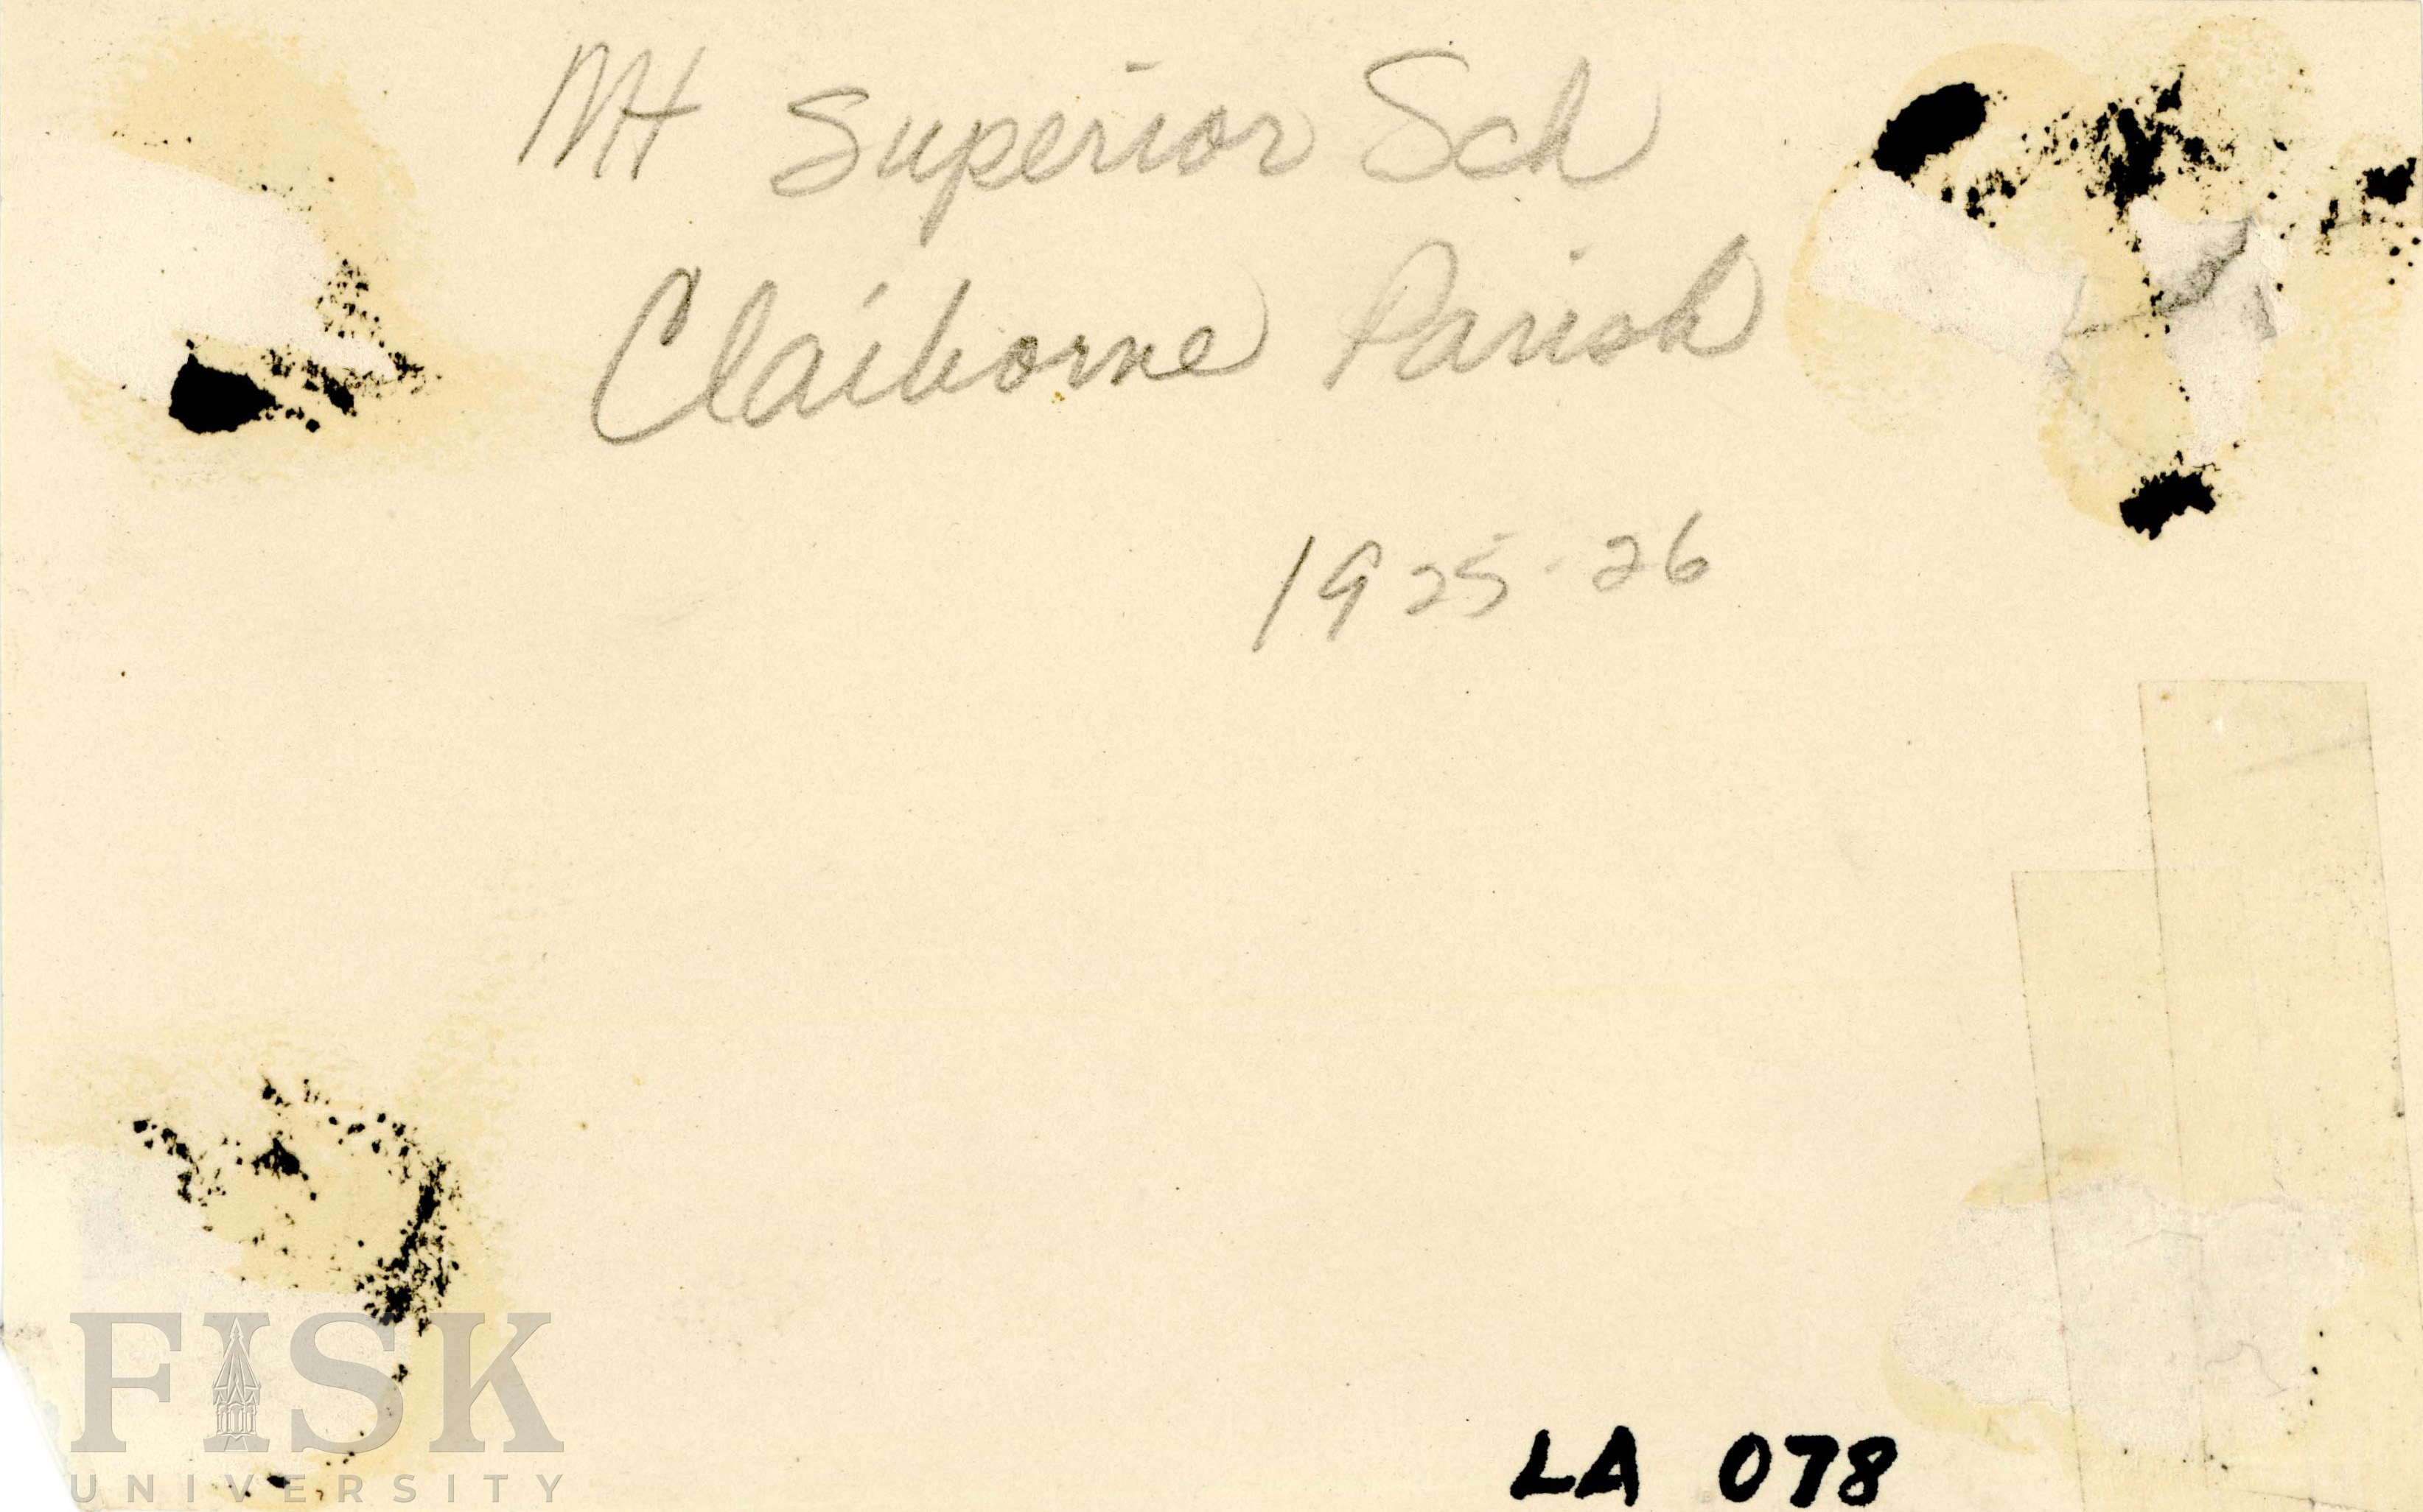 Mt Superior Sch
Claiborne Parish
1925-26
LA 078
FISK
UNIVERSITY